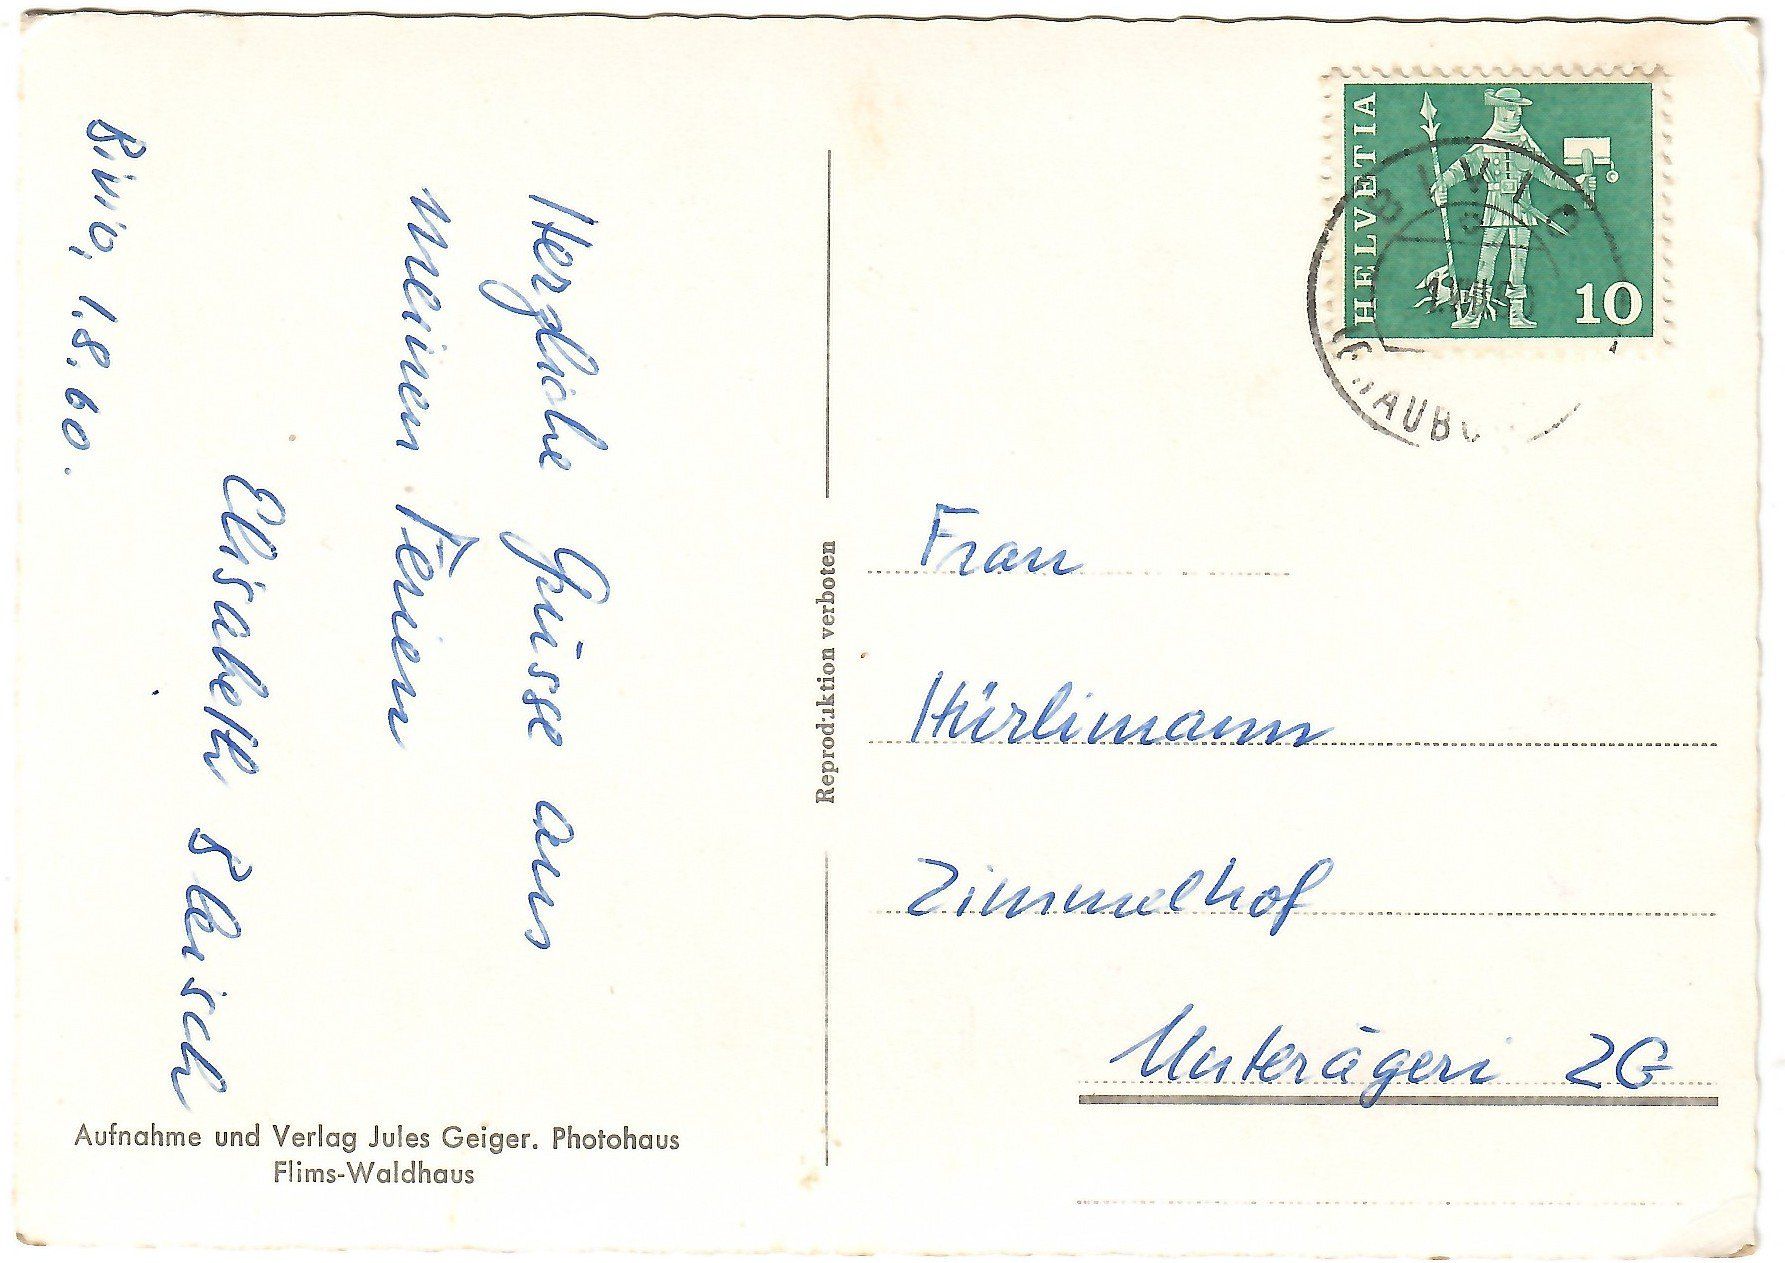 Bivio, 1.8.60.
Herzliche Grüsse aus
meinen Ferien
Elisabeth
Aufnahme und Verlag Jules Geiger. Photohaus
Flims-Waldhaus
Reproduktion verboten
HELVETIA
10
BIVIO
Frau
Hürlimann
Zimmelhof
Unterägeri ZG